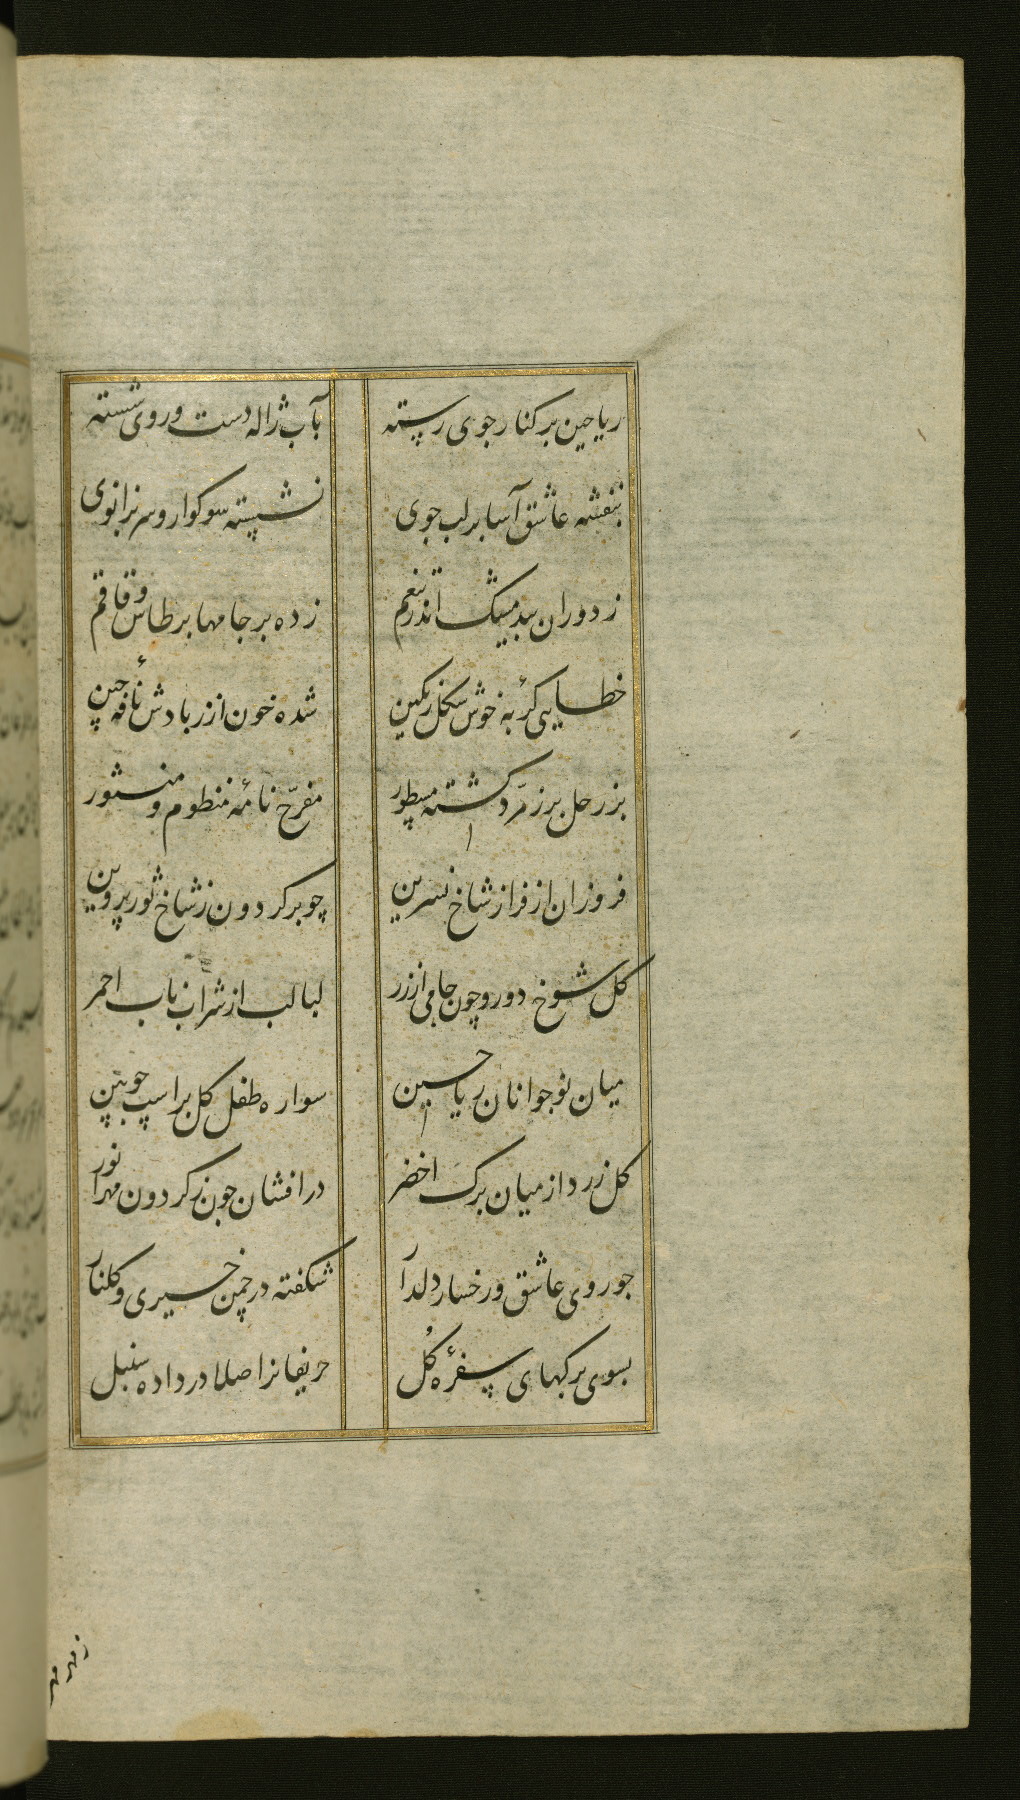 ریاحین بر کنار جوی رسته
بآب ژاله دست و روی شسته
بنفشه عاشق آسا بر لب جوی
نشسته سوکوار و سر بزانوی
ز دوران بیدمشک اندر تنعم
زده بر جامها برطاس و قاقم
خطایی کربه خوش شکل رنکین
شده خون از زبادش نافهٔ چین
بزر حل بر زمرّد کشته مسطور
مفرّح نامهٔ منظوم و منثور
فروزان از فراز شاخ نسرین
چو بر کردون ز شاخ ثور پروین
کل شوخ دورو چون جامی از زر
لبالب از شراب ناب احمر
میان نوجوانان ریاحین
سواره طفل کل بر اسب چوبین
کل زرد از میان برک اخضر
درافشان چون ز کردون مهر انور
چو روی عاشق و رخسار دلدار
شکفته در چمن خیری و کلنار
بسوی برکهای سفرهٔ کُل
حریفانرا صلا در داده سنبل
ز مهر مهر